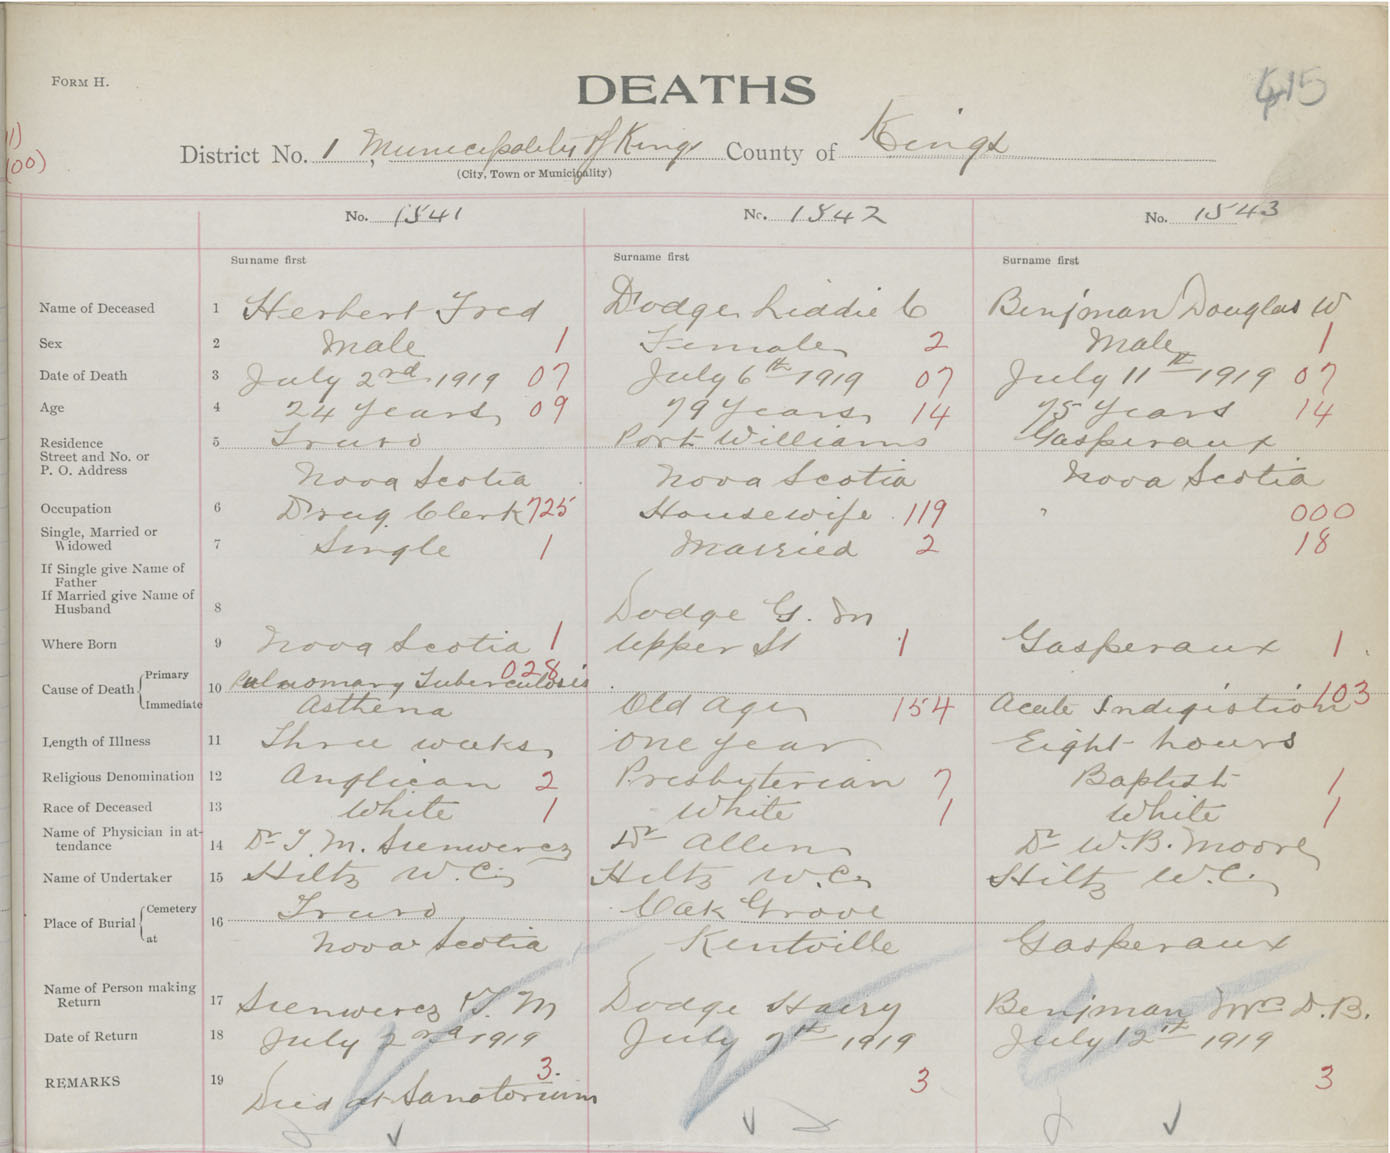 FORM H.
DEATHS
415
1)
(00)
District No. 1, Municipality of Kings County of Kings
(City, Town or Municipality)
No. 1841 No. 1842 No. 1843
Surname first Surname first Surname first
Name of Deceased 1 Herbert Fred Dodge Liddie C Benjman Douglas W
Sex 2 Male 1 Female 2 Male 1
Date of Death 3 July 2nd 1919 07 July 6th 1919 07 July 11th 1919 07
Age 4 24 Years 09 79 Years 14 75 Years 14
Residence 5 Truro Port Williams Gasperaux
Street and No. or
P. O. Address Nova Scotia Nova Scotia Nova Scotia
Occupation 6 Drug Clerk 725 Housewife 119 000
Single, Married or
Widowed 7 Single 1 Married 2 18
If Single give Name of
Father
If Married give Name of
Husband 8 Dodge G. M
Where Born 9 Nova Scotia 1 Upper St 1 Gasperaux 1
Cause of Death Primary 10 Pulmonary Tuberculosis 028
Immediate Asthena Old Age 154 Acute Indigistion 103
Length of Illness 11 Three weeks One year Eight hours
Religious Denomination 12 Anglican 2 Presbyterian 7 Baptist 1
Race of Deceased 13 White 1 White 1 White 1
Name of Physician in at-
tendance 14 Dr T. M. Sienwerez Dr Allen Dr W. B. Moore
Name of Undertaker 15 Hiltz W. C. Hiltz W. C. Hiltz W. C.
Place of Burial Cemetery 16 Truro Oak Grove
at Nova Scotia Kentville Gasperaux
Name of Person making
Return 17 Sienwerez T. M Dodge Harry Benjman Mrs D. B.
Date of Return 18 July 2nd 1919 July 7th 1919 July 12th 1919
REMARKS 19 3. 3 3
Died at Sanatorium